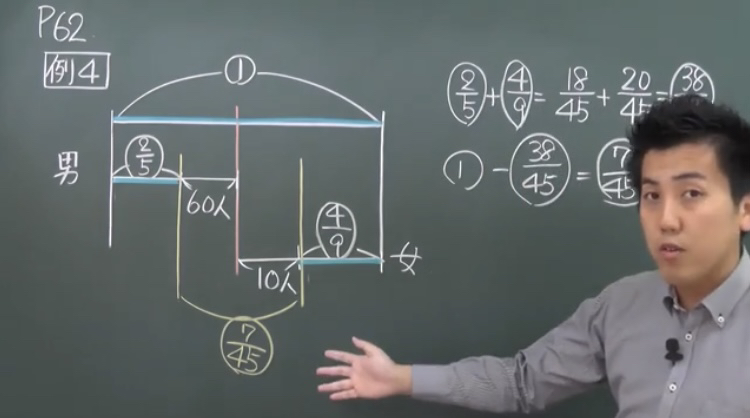 P62
例4
①
男
2/5
60人
4/9
女
10人
7/45
2/5 + 4/9 = 18/45 + 20/45 = 38
① - 38/45 = 7/45